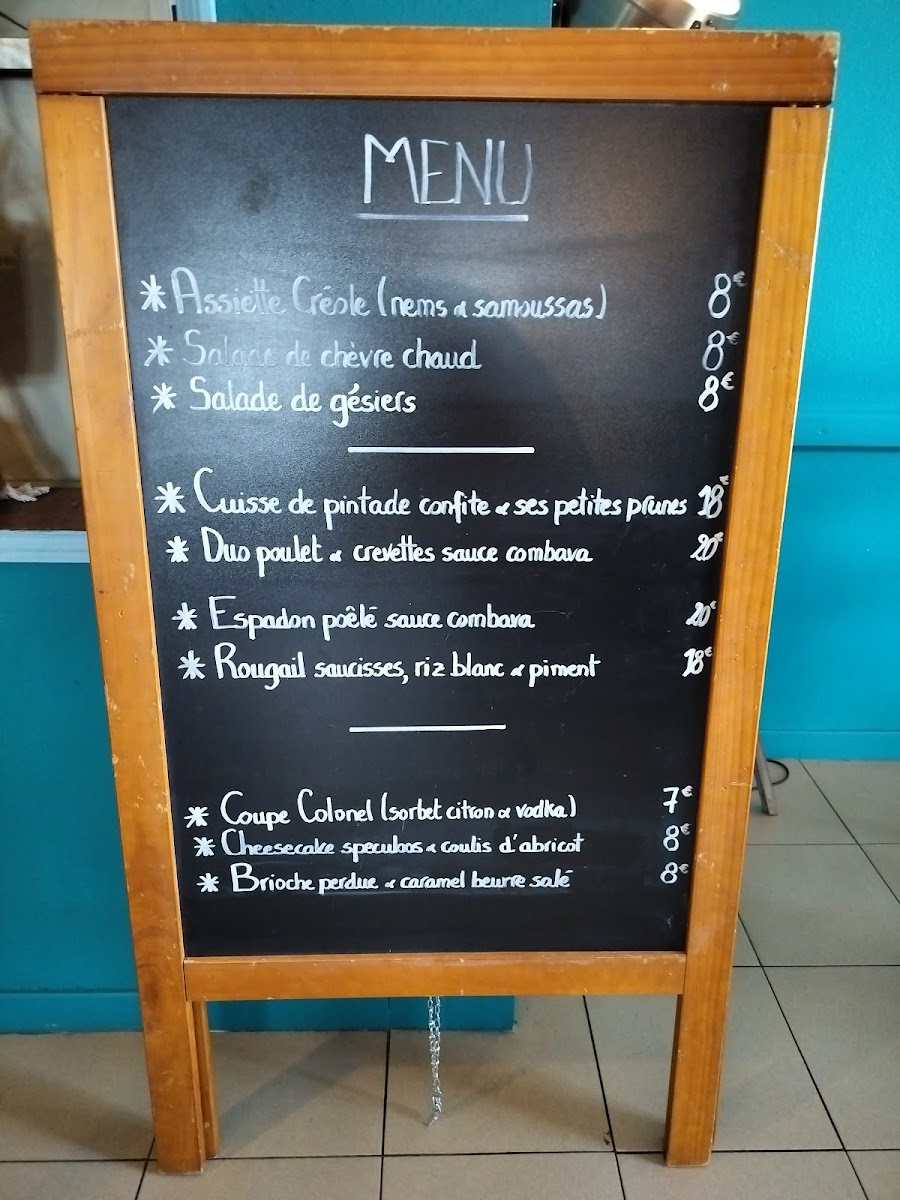 MENU
* Assiette Créole (nems & samoussas) 8€
* Salade de chèvre chaud 8€
* Salade de gésiers 8€
* Cuisse de pintade confite & ses petites prunes 18€
* Duo poulet & crevettes sauce combava 20€
* Espadon poêlé sauce combava 20€
* Rougail saucisses, riz blanc & piment 18€
* Coupe Colonel (sorbet citron & vodka) 7€
* Cheesecake speculoos & coulis d'abricot 8€
* Brioche perdue & caramel beurre salé 8€